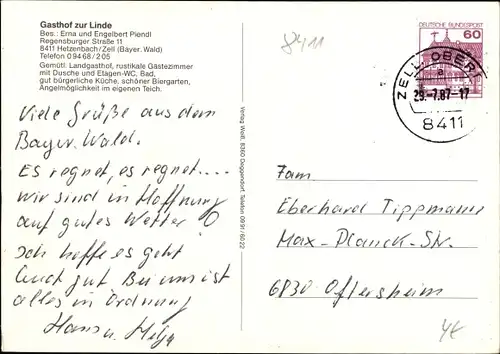 Gasthof zur Linde
Bes.: Erna und Engelbert Piendl
Regensburger Straße 11
8411 Hetzenbach/Zell (Bayer. Wald)
Telefon 0 94 68 / 2 05
Gemütl. Landgasthof, rustikale Gästezimmer
mit Dusche und Etagen-WC, Bad,
gut bürgerliche Küche, schöner Biergarten,
Angelmöglichkeit im eigenen Teich.
Viele Grüße aus dem
Bayer. Wald.
Es regnet, es regnet....
wir sind in Hoffnung
auf gutes Wetter!
Ich hoffe es geht
Euch gut. Bei uns ist
alles in Ordnung
Hans u. Helga
Verlag Weiß, 8360 Deggendorf, Telefon 09 91 / 60 22
8411
DEUTSCHE BUNDESPOST
60
ZELL, OBERPF
a
29.-7.87-17
8411
Fam.
Eberhard Tippmann
Max-Planck-Str.
6830 Oftersheim
4€